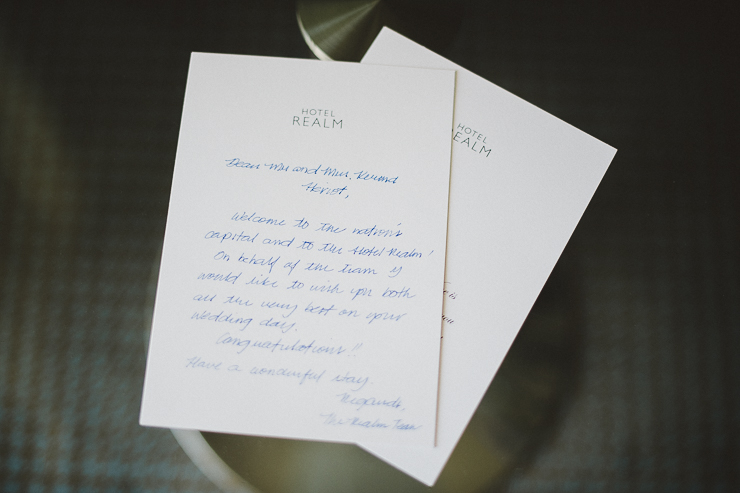 HOTEL
REALM
Dear Mr and Mrs,
Welcome to the nation's
capital and to the Hotel Realm!
On behalf of the team I
would like to wish you both
all the very best on your
wedding day.
Congratulations!!
Have a wonderful stay.
Regards,
The Realm Team
HOTEL
REALM